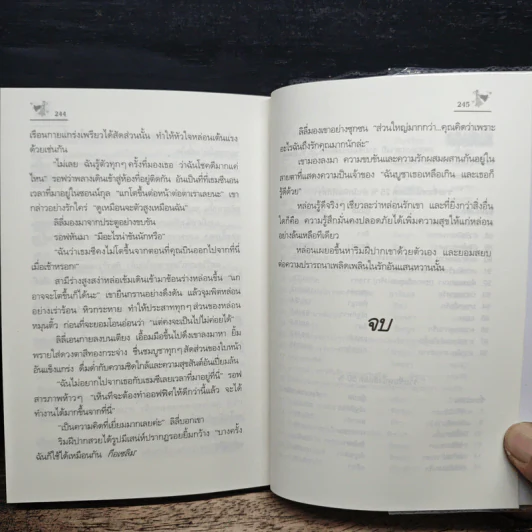 244
เรือนกายแกร่งเพรียวได้สัดส่วนนั้น ทำให้หัวใจหล่อนเต้นแรง
ด้วยเช่นกัน
"ไม่เลย ฉันรู้ตัวทุกๆ ครั้งที่มองเธอ ว่าฉันโชคดีมากแค่
ไหน" รอฟว่าพลางเดินเข้าสู่ห้องที่อยู่ติดกัน อันเป็นที่ที่เชมซีนอน
เวลาที่มาอยู่ในซอนน์กุล "แกโตขึ้นต่อหน้าต่อตาเราเลยนะ" เขา
กล่าวอย่างรักใคร่ "ดูเหมือนจะตัวสูงเหมือนฉัน"
ลิลี่มองมาจากประตูอย่างขบขัน
รอฟหันมา "มีอะไรน่าขันนักหรือ"
"ฉันว่าเชมซีคงไม่โตขึ้นจากตอนที่คุณบินออกไปจากที่นี่
เมื่อเช้าหรอก"
สามีร่างสูงสง่าหล่อเข้มเดินเข้ามาช้อนร่างหล่อนขึ้น "แก
อาจจะโตขึ้นก็ได้นะ" เขายืนกรานอย่างดึงดัน แล้วจุมพิตหล่อน
อย่างเร่าร้อน หิวกระหาย ทำให้ประสาททุกๆ ส่วนของหล่อน
หมุนติ้ว ก่อนที่จะยอมโอนอ่อนว่า "แต่คงจะเป็นไปไม่ค่อยได้"
ลิลี่เอนกายลงบนเตียง เอื้อมมือขึ้นไปดึงเขาลงมาหา ยิ้ม
พรายใส่ดวงตาสีทองกระจ่าง ชื่นชมบูชาทุกๆ สัดส่วนของใบหน้า
อันแข็งแกร่ง ดื่มด่ำกับความชิดใกล้และความสุขสันต์อันเปี่ยมล้น
"ฉันไม่อยากไปจากเธอกับเชมซีเลยเวลาที่มาอยู่ที่นี่" รอฟ
สารภาพห้าวๆ "เห็นทีจะต้องทำออฟฟิศให้ดีกว่านี้แล้ว จะได้
ทำงานได้มากขึ้นจากที่นี่"
"เป็นความคิดที่เยี่ยมมากเลยค่ะ" ลิลี่บอกเขา
ริมฝีปากสวยได้รูปมีเสน่ห์ปรากฏรอยยิ้มกว้าง "บางครั้ง
ฉันก็ใช้ได้เหมือนกัน
245
ลิลี่มองเขาอย่างซุกซน "ส่วนใหญ่มากกว่า...คุณคิดว่าเพราะ
อะไรฉันถึงรักคุณมากนักล่ะ"
เขามองลงมา ความขบขันและความรักผสมผสานกันอยู่ใน
สายตาที่แสดงความเป็นเจ้าของ "ฉันบูชาเธอเหลือเกิน และเธอก็
รู้ดีด้วย"
หล่อนรู้ดีจริงๆ เชียวล่ะว่าหล่อนรักเขา และที่ยิ่งกว่าสิ่งอื่น
ใดก็คือ ความรู้สึกมั่นคงปลอดภัยได้เพิ่มความสุขให้แก่หล่อน
อย่างล้นเหลือทีเดียว
หล่อนเผยอขึ้นหาริมฝีปากเขาด้วยตัวเอง และยอมสยบ
ต่อความปรารถนาเพลิดเพลินในรักอันแสนหวานนั้น
จบ